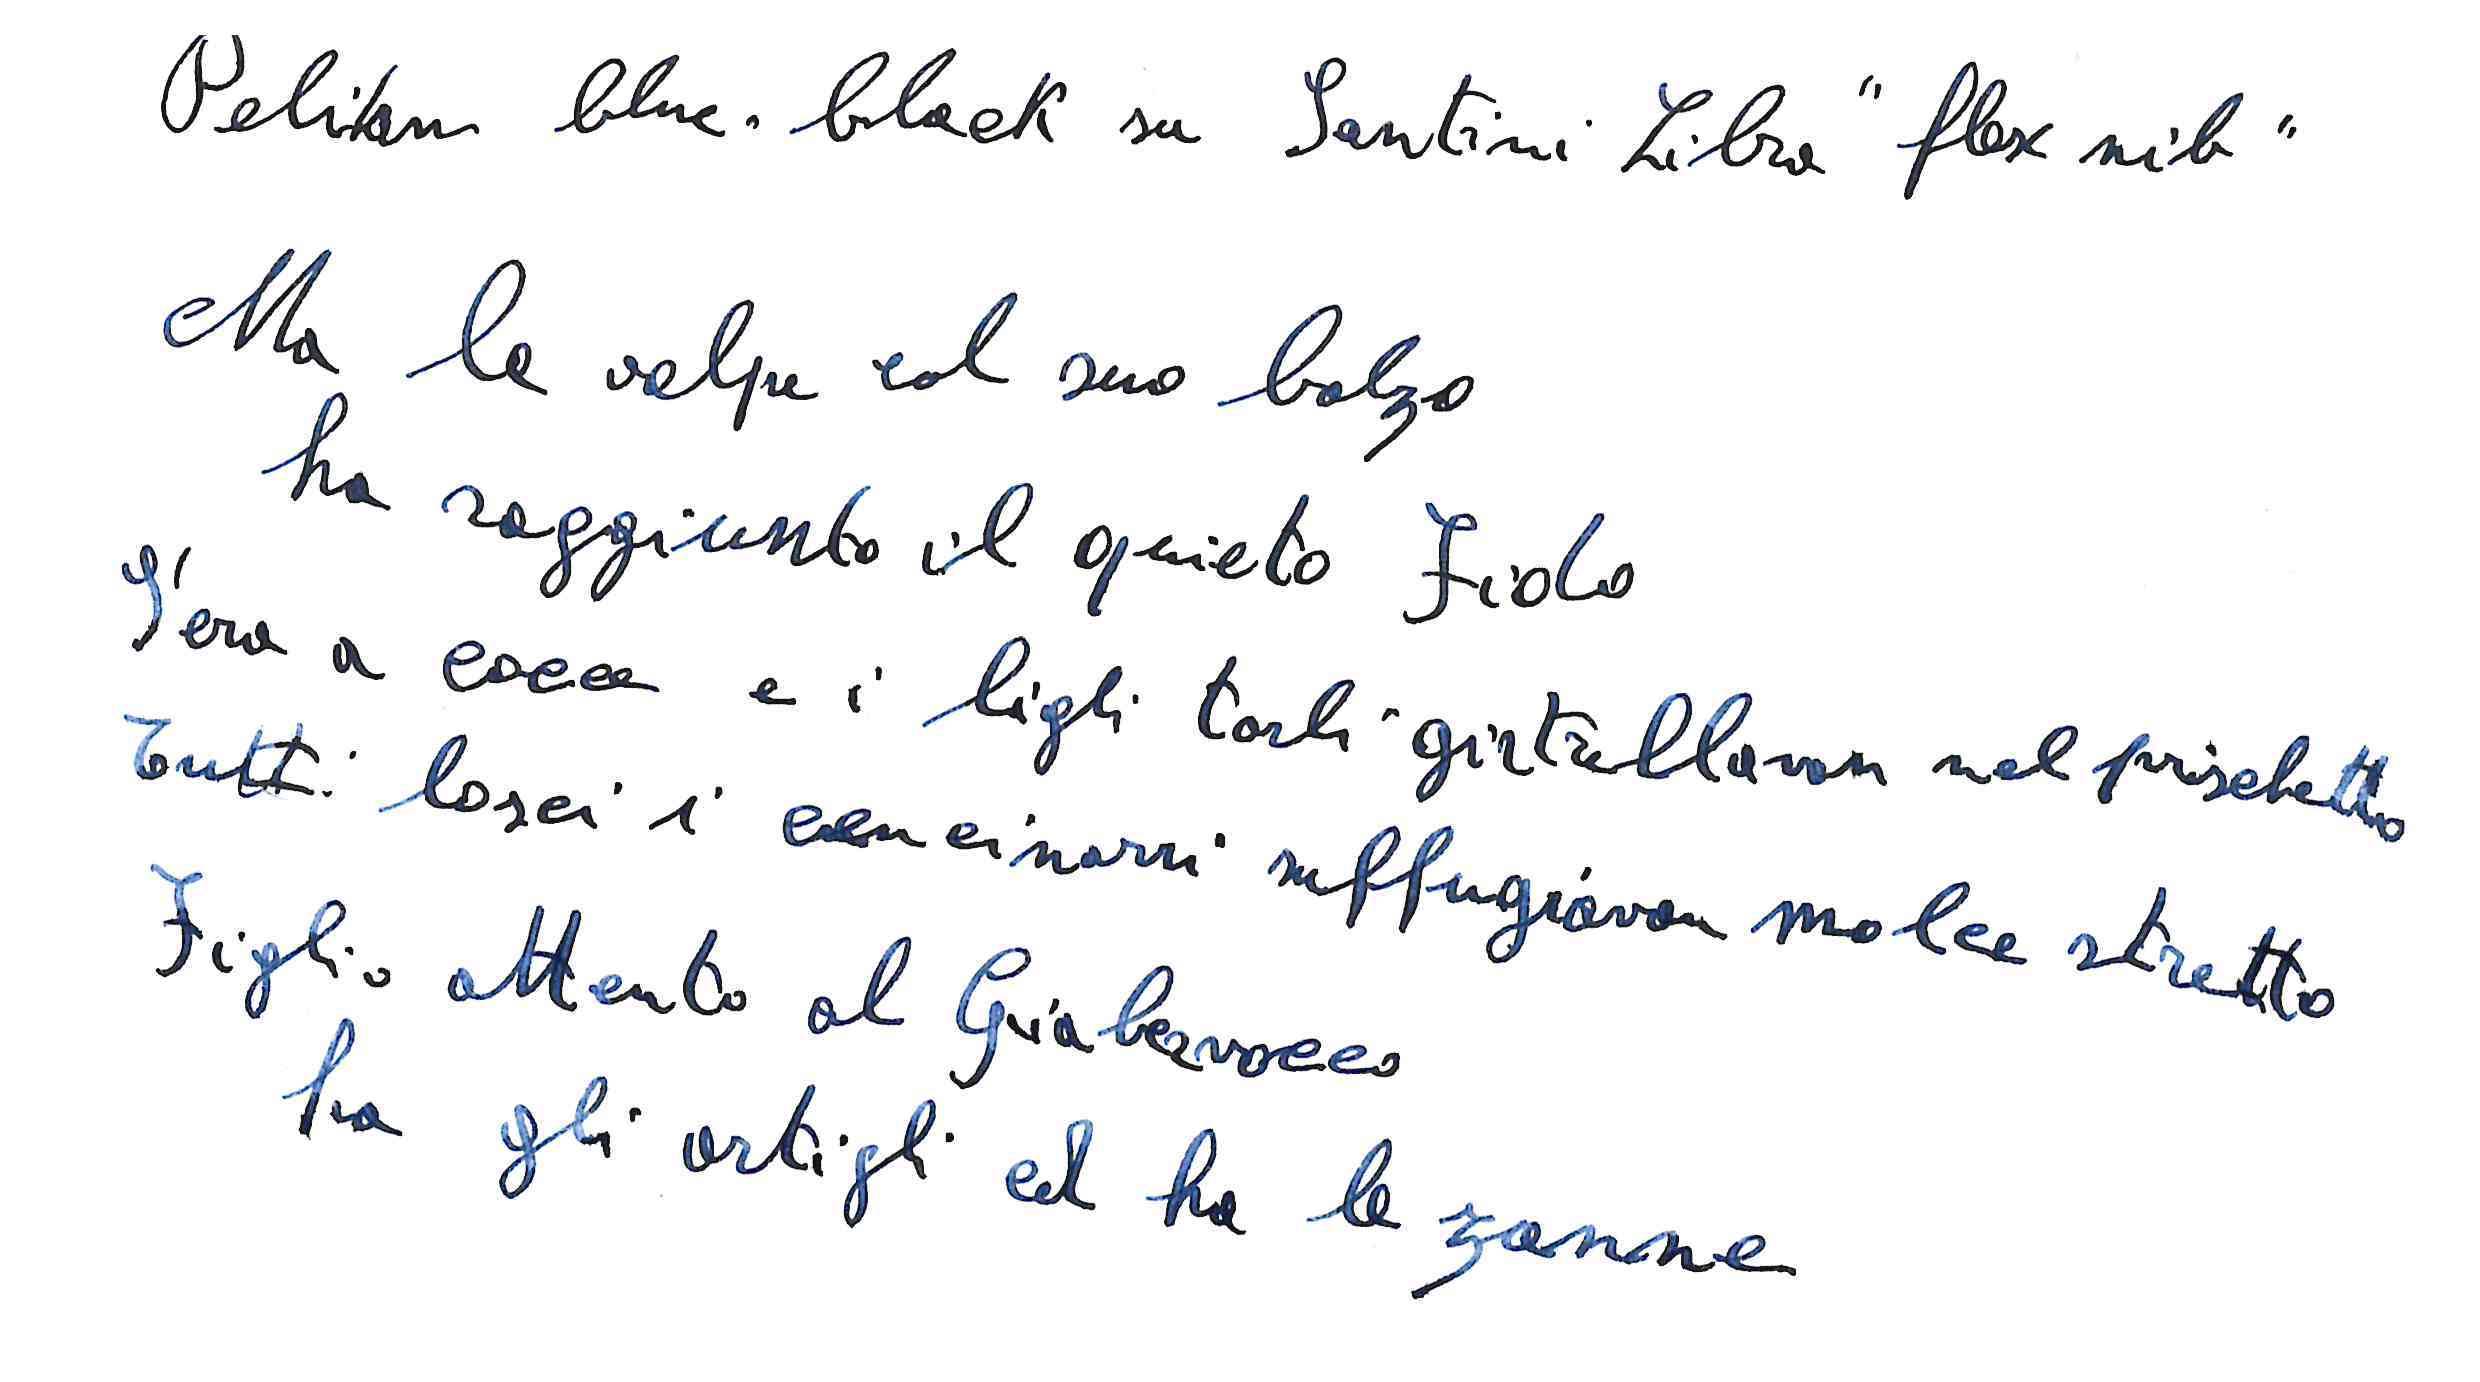 Pelikan blue-black su Santini Libra "flex nib"
Ma la volpe col suo balzo
ha raggiunto il quieto Fido
S'era a cocce e i ligli tarli girtrellavan nel pischetto
Tutti losci i cencinarri suffuggiavan molce stretto
Figlio attento al Giabervocco
ha gli artigli ed ha le zanne